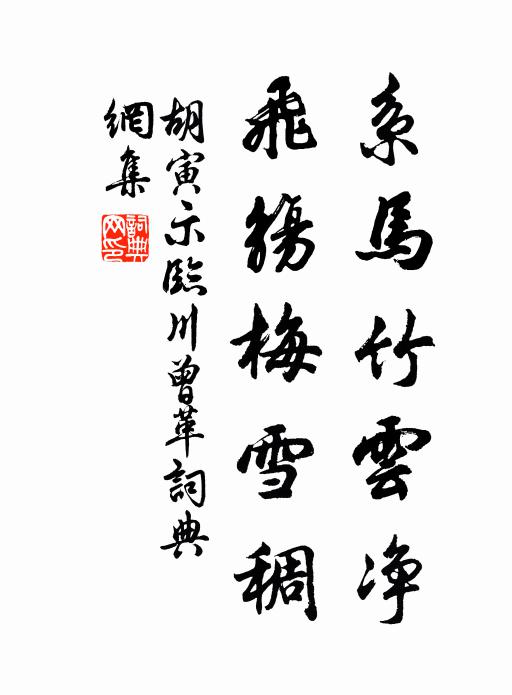 系馬竹雲净
飛觴梅雪稠
胡寅示臨川曾革詞典
網集
詞典网印